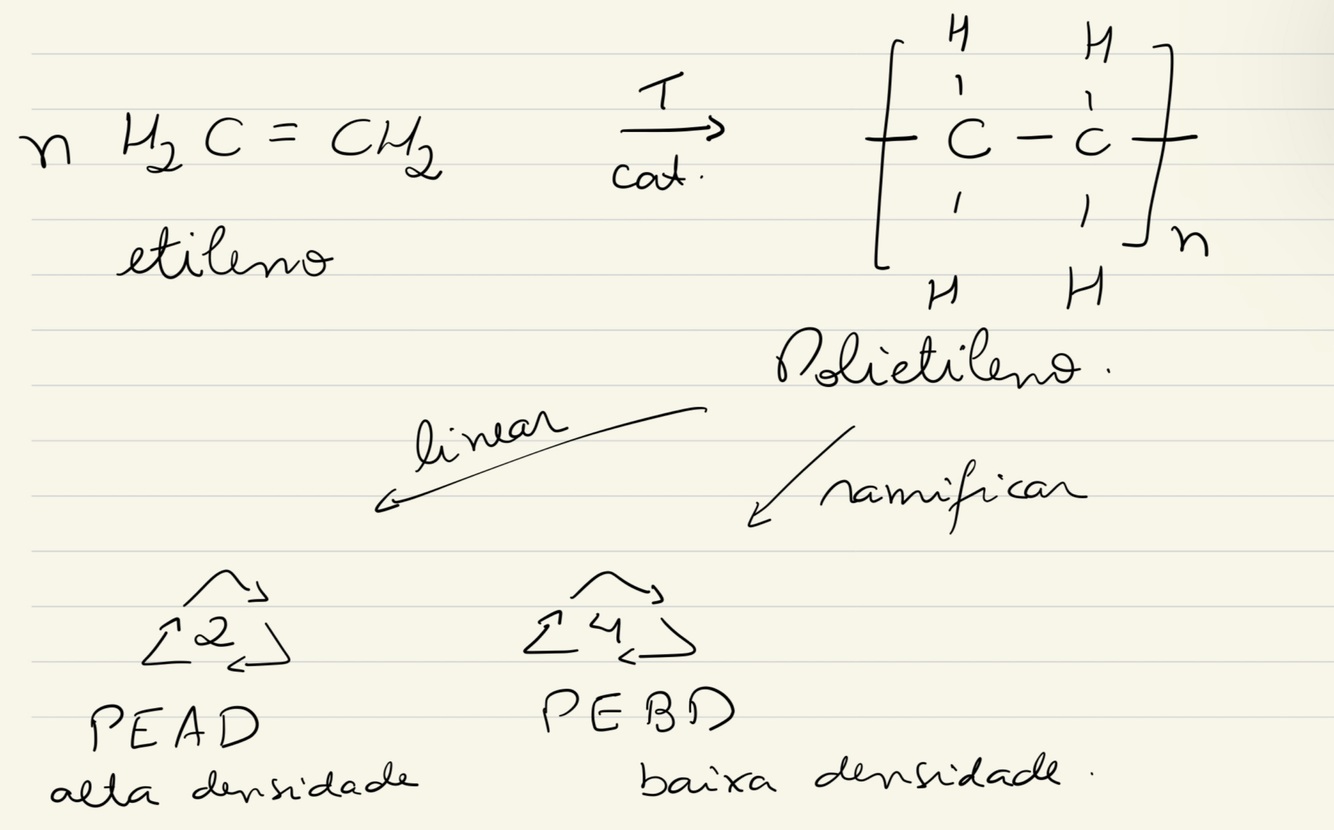 n H₂C = CH₂
T
cat.
H H
[ - C - C - ]n
H H
etileno
Polietileno.
linear
ramificar
2
4
PEAD
PEBD
alta densidade
baixa densidade.